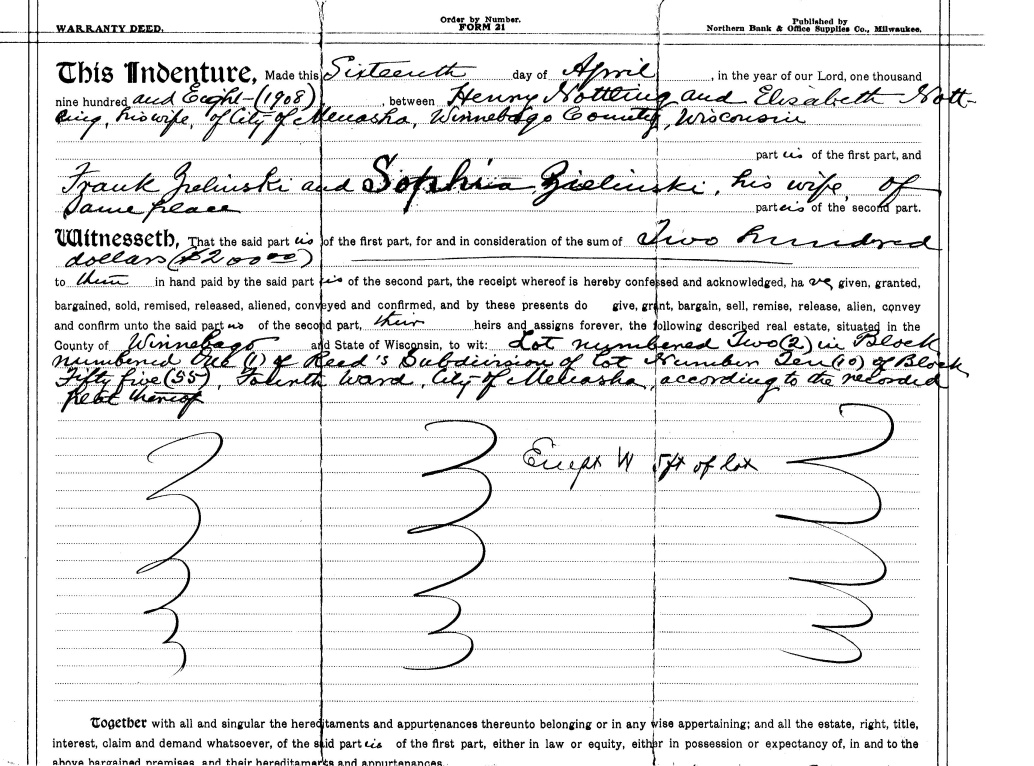 WARRANTY DEED.
Order by Number.
FORM 21
Published by
Northern Bank & Office Supplies Co., Milwaukee.
This Indenture, Made this Sixteenth day of April, in the year of our Lord, one thousand
nine hundred and Eight-(1908), between Henry Nottling and Elisabeth Nott-
ling, his wife, of City of Menasha, Winnebago County, Wisconsin
part ies of the first part, and
Frank Zielinski and Sophia Zielinski, his wife, of
Same place
part ies of the second part.
Witnesseth, That the said part ies of the first part, for and in consideration of the sum of Two hundred
dollars ($200 00)
to them in hand paid by the said part ies of the second part, the receipt whereof is hereby confessed and acknowledged, ha ve given, granted,
bargained, sold, remised, released, aliened, conveyed and confirmed, and by these presents do give, grant, bargain, sell, remise, release, alien, convey
and confirm unto the said part ies of the second part, their heirs and assigns forever, the following described real estate, situated in the
County of Winnebago and State of Wisconsin, to wit: Lot numbered Two (2) in Block
numbered One (1) of Reed's Subdivision of Lot Number Ten (10) of Block
Fifty five (55), Fourth Ward, City of Menasha, according to the recorded
plat thereof
Except W 5ft of lot
Together with all and singular the hereditaments and appurtenances thereunto belonging or in any wise appertaining; and all the estate, right, title,
interest, claim and demand whatsoever, of the said part ies of the first part, either in law or equity, either in possession or expectancy of, in and to the
above bargained premises, and their hereditaments and appurtenances.